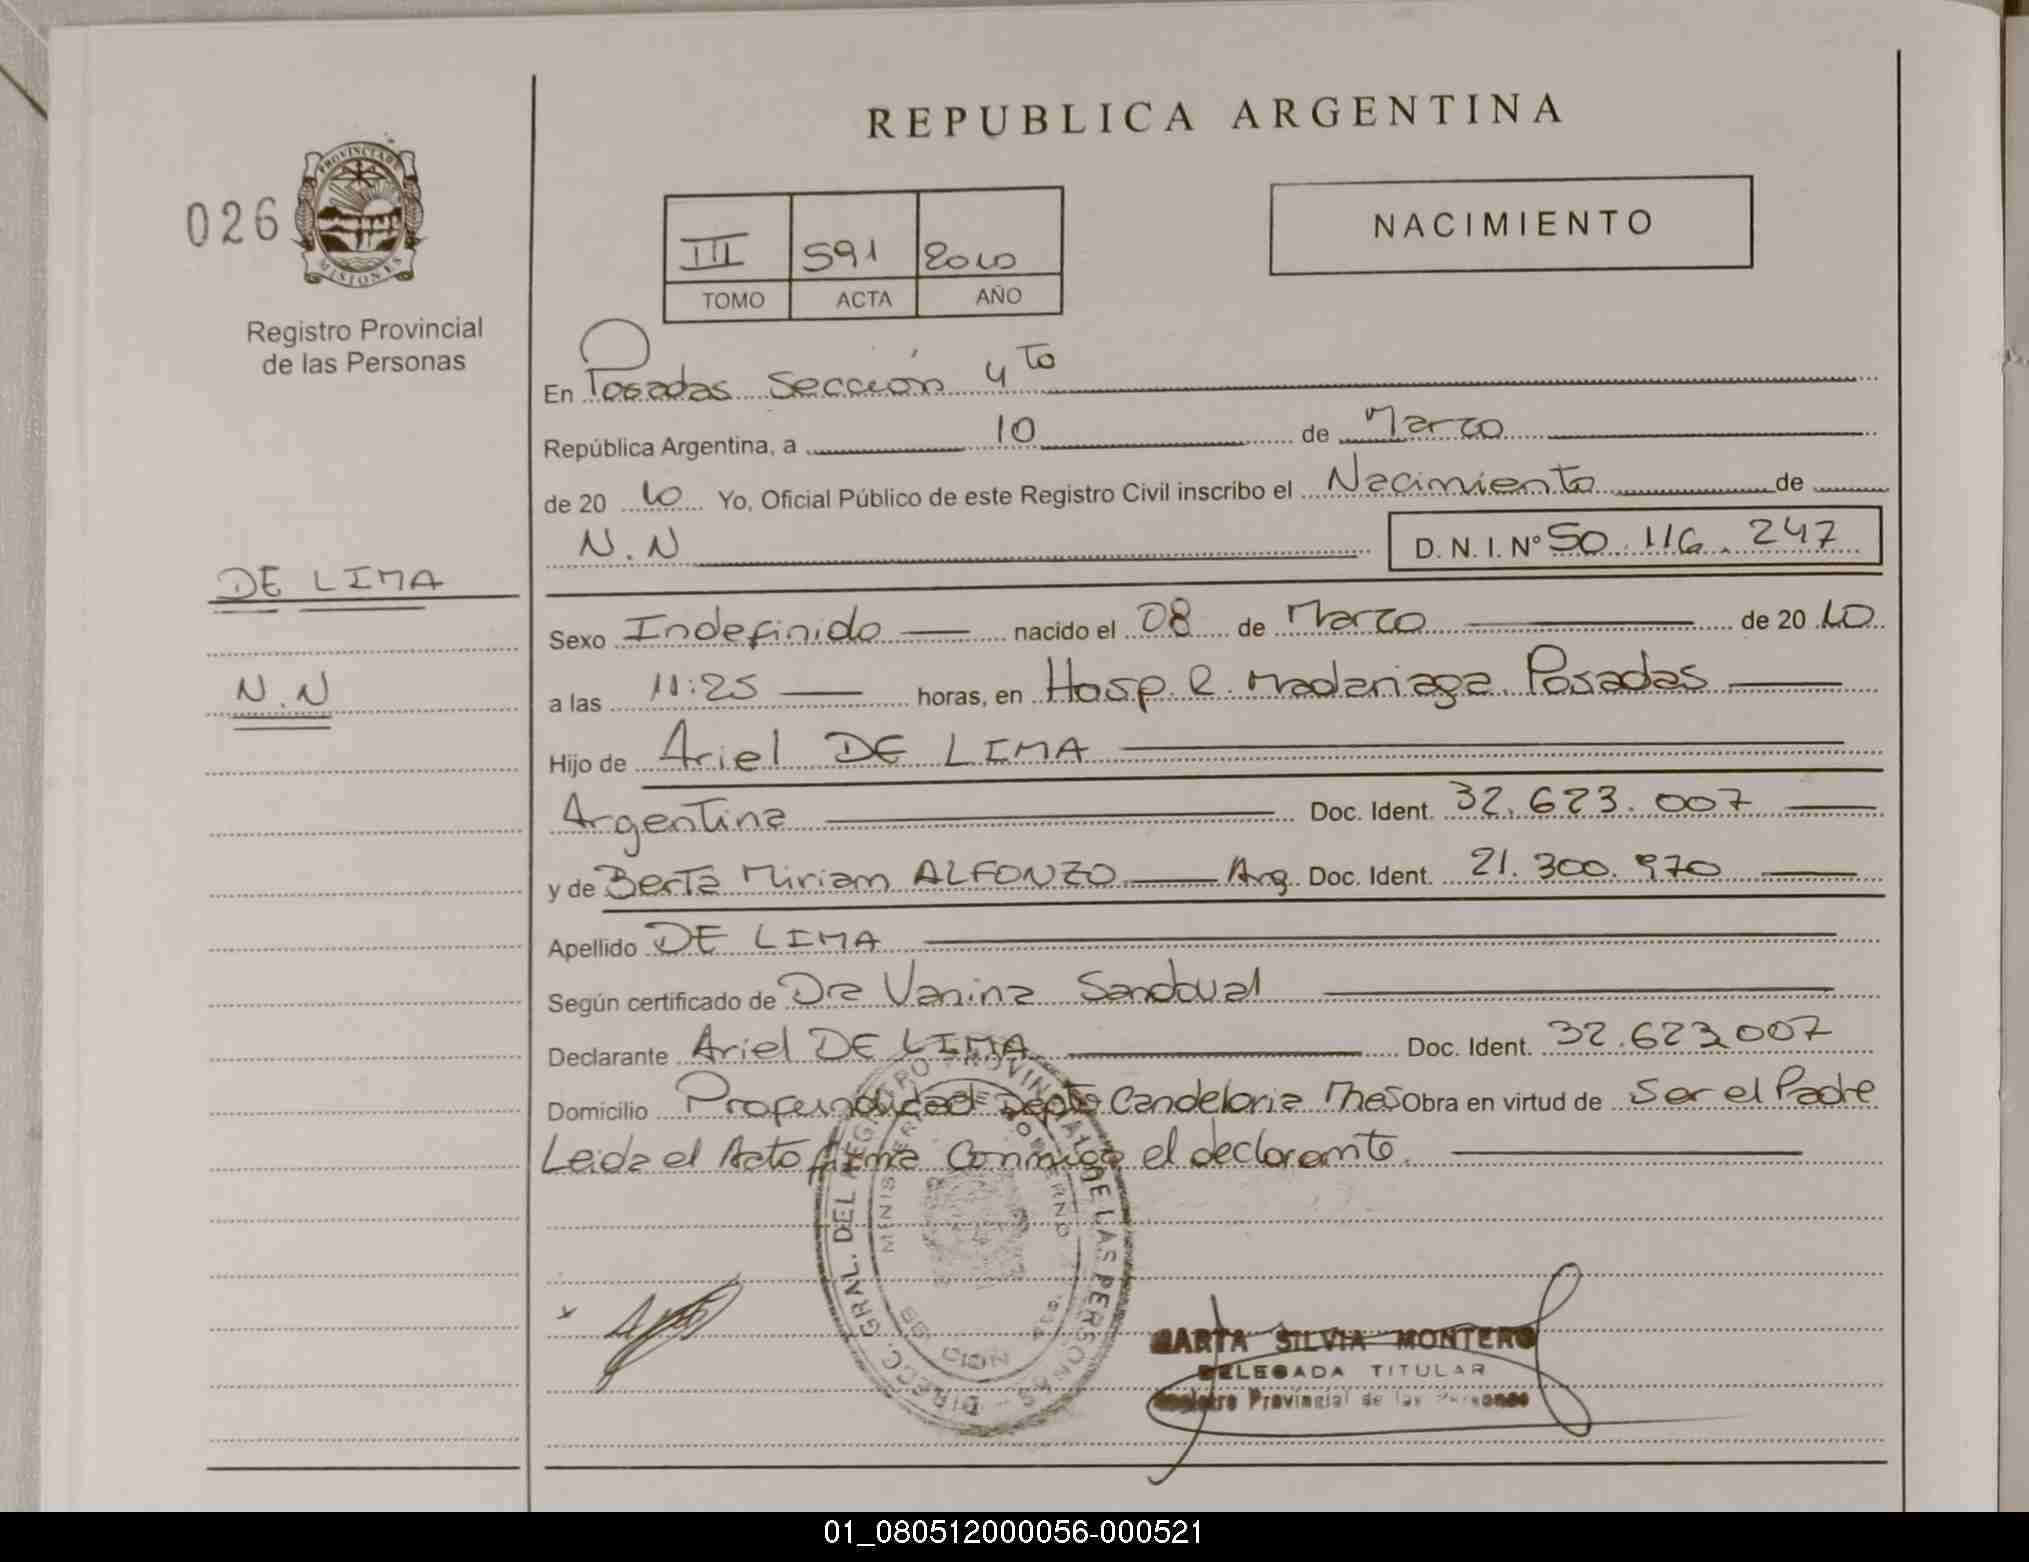 REPUBLICA ARGENTINA
026
PROVINCIA DE
MISIONES
Registro Provincial
de las Personas
III 591 2010
TOMO ACTA AÑO
NACIMIENTO
En Posadas Sección 4to
República Argentina, a 10 de Marzo
de 20 10 Yo, Oficial Público de este Registro Civil inscribo el Nacimiento de
N.N D. N. I. Nº 50.116.247
DE LIMA
N.N
Sexo Indefinido nacido el 08 de Marzo de 20 10
a las 11:25 horas, en Hosp. R. Madariaga Posadas
Hijo de Ariel DE LIMA
Argentina Doc. Ident. 32.623.007
y de Berta Miriam ALFONZO Arg. Doc. Ident. 21.300.970
Apellido DE LIMA
Según certificado de Dra Vanina Sandoval
Declarante Ariel DE LIMA Doc. Ident. 32.623.007
Domicilio Profundidad Depto Candelaria Mnes Obra en virtud de Ser el Padre
Leida el Acta firma Conmigo el declarante.
DIRECC. GRAL. DEL REGISTRO PROVINCIAL DE LAS PERSONAS
MINISTERIO DE GOBIERNO
MARTA SILVIA MONTERO
DELEGADA TITULAR
Registro Provincial de las Personas
01_080512000056-000521